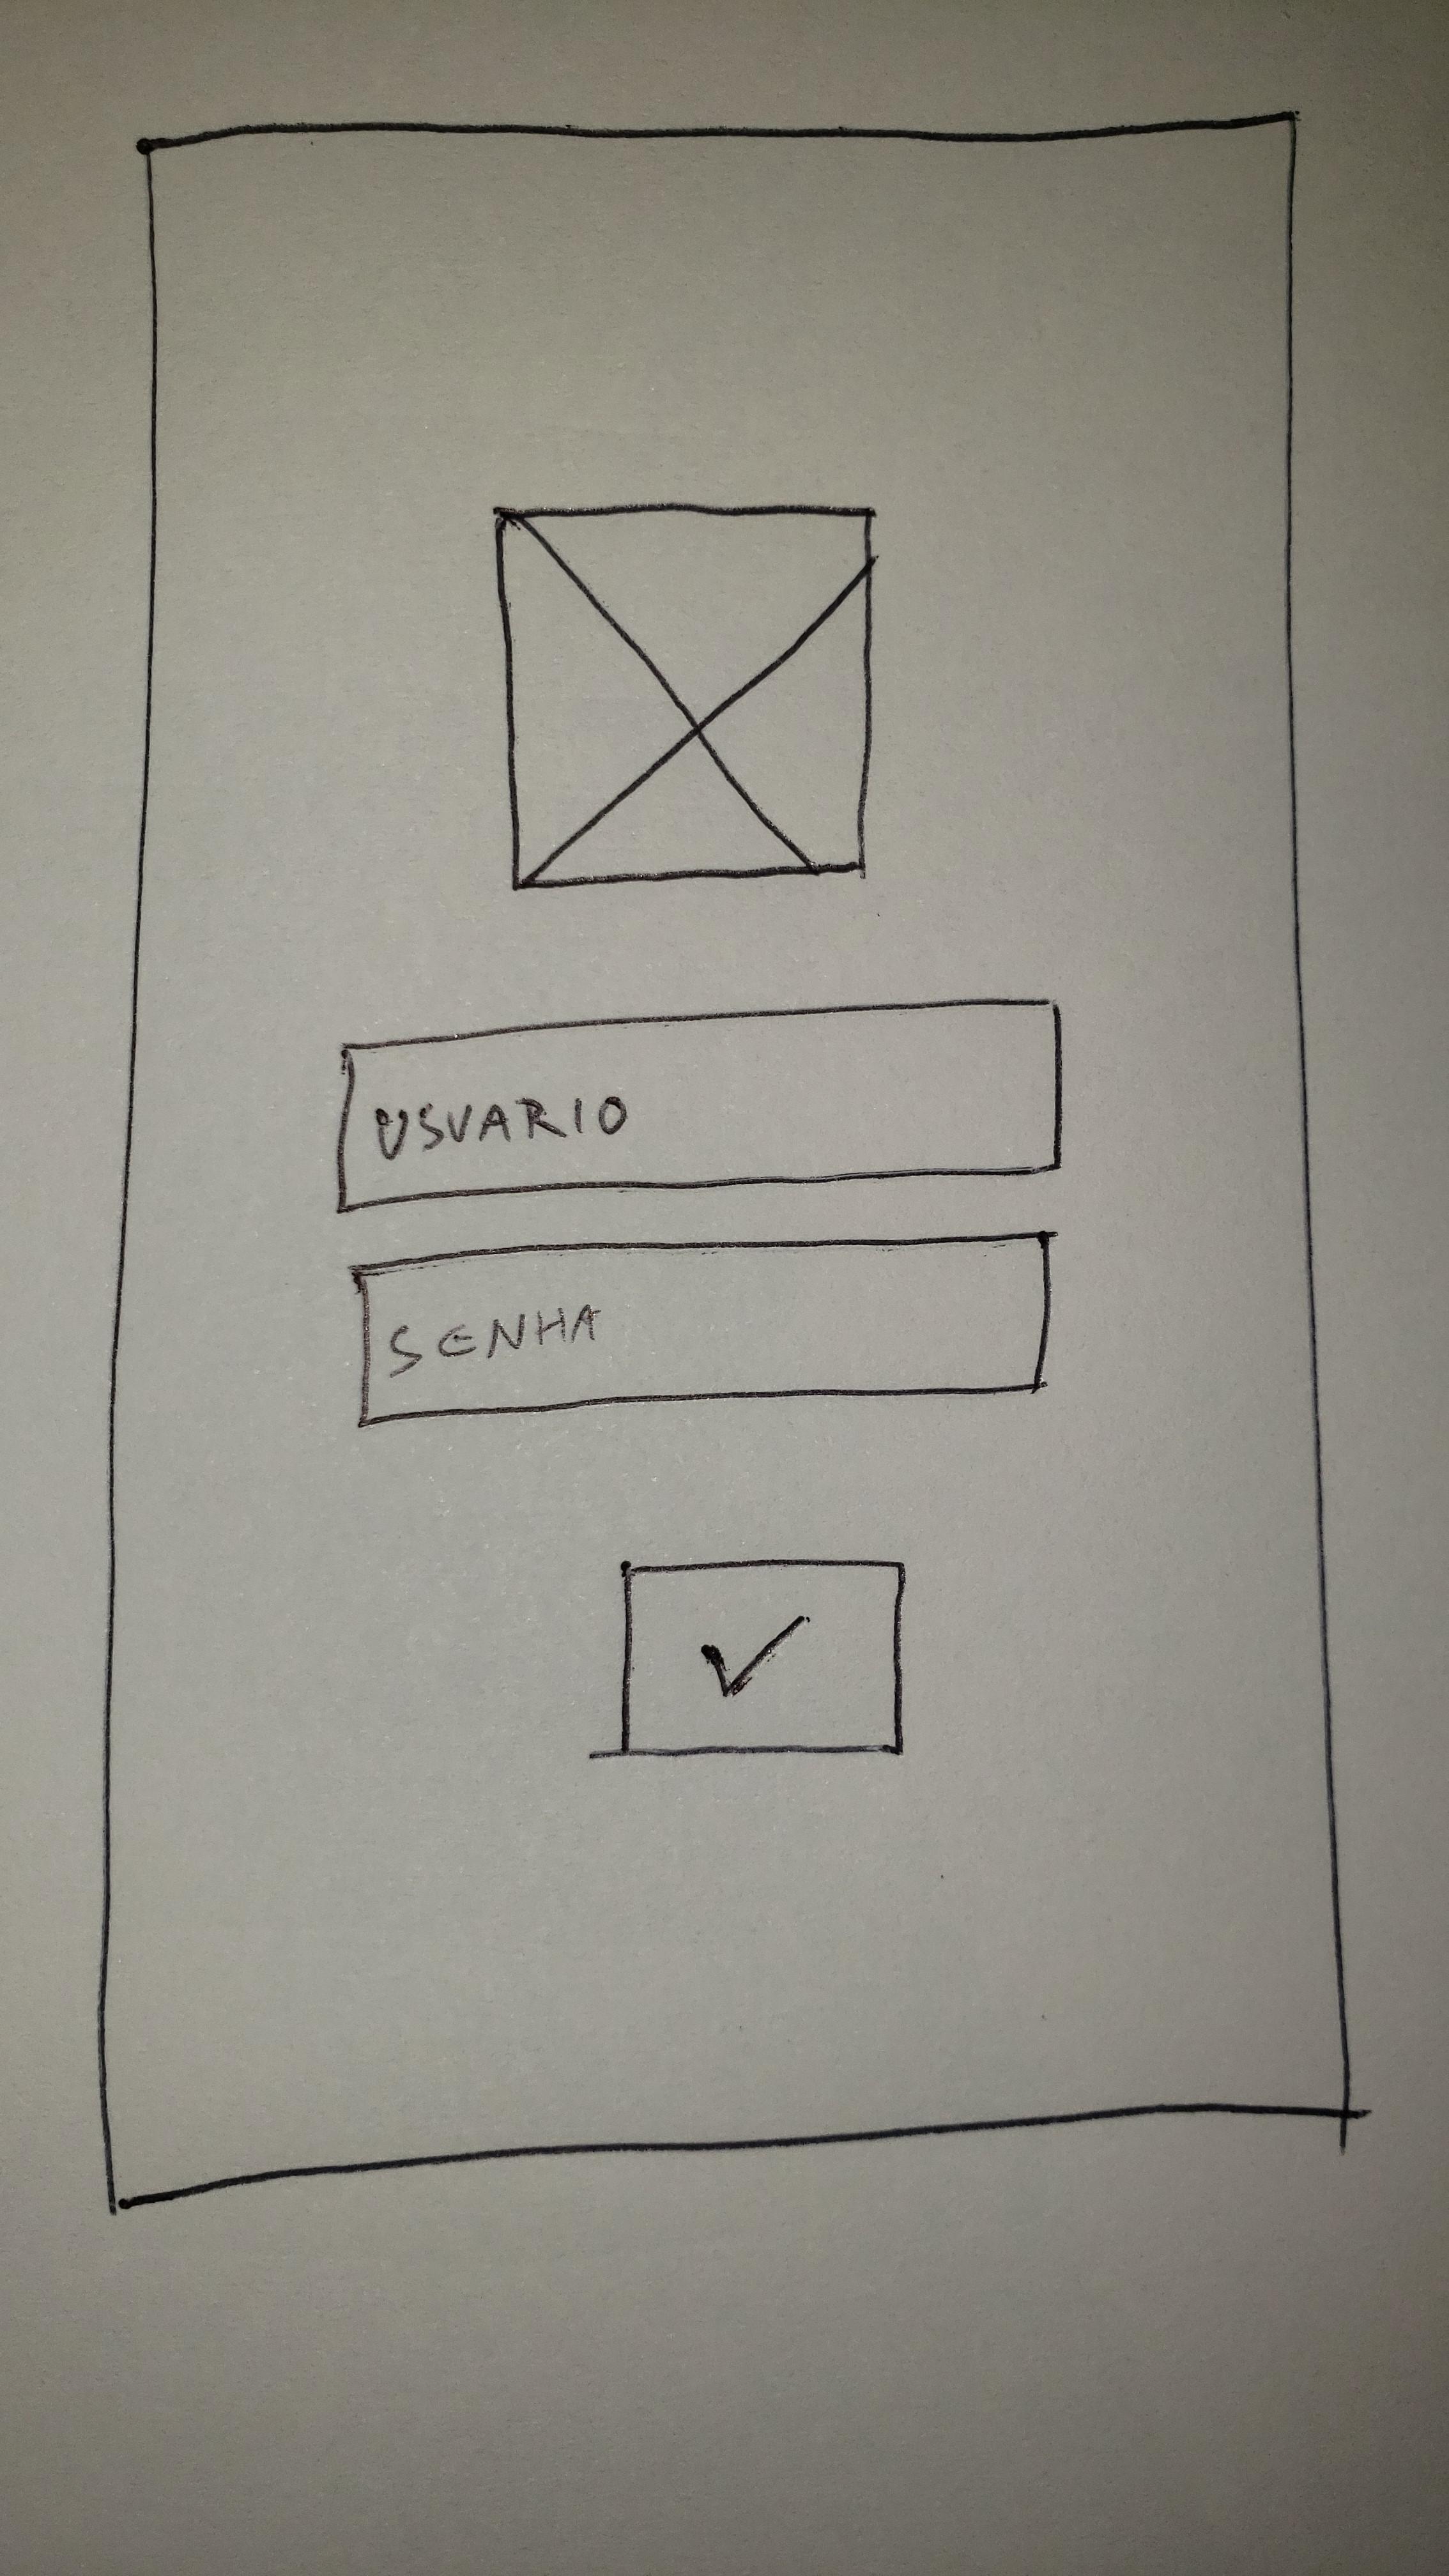 USUARIO
SENHA